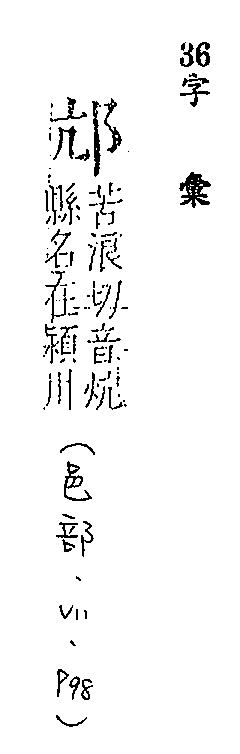 36字 彙
邟
苦浪切音炕
縣名在穎川
(邑部、VII、P98)